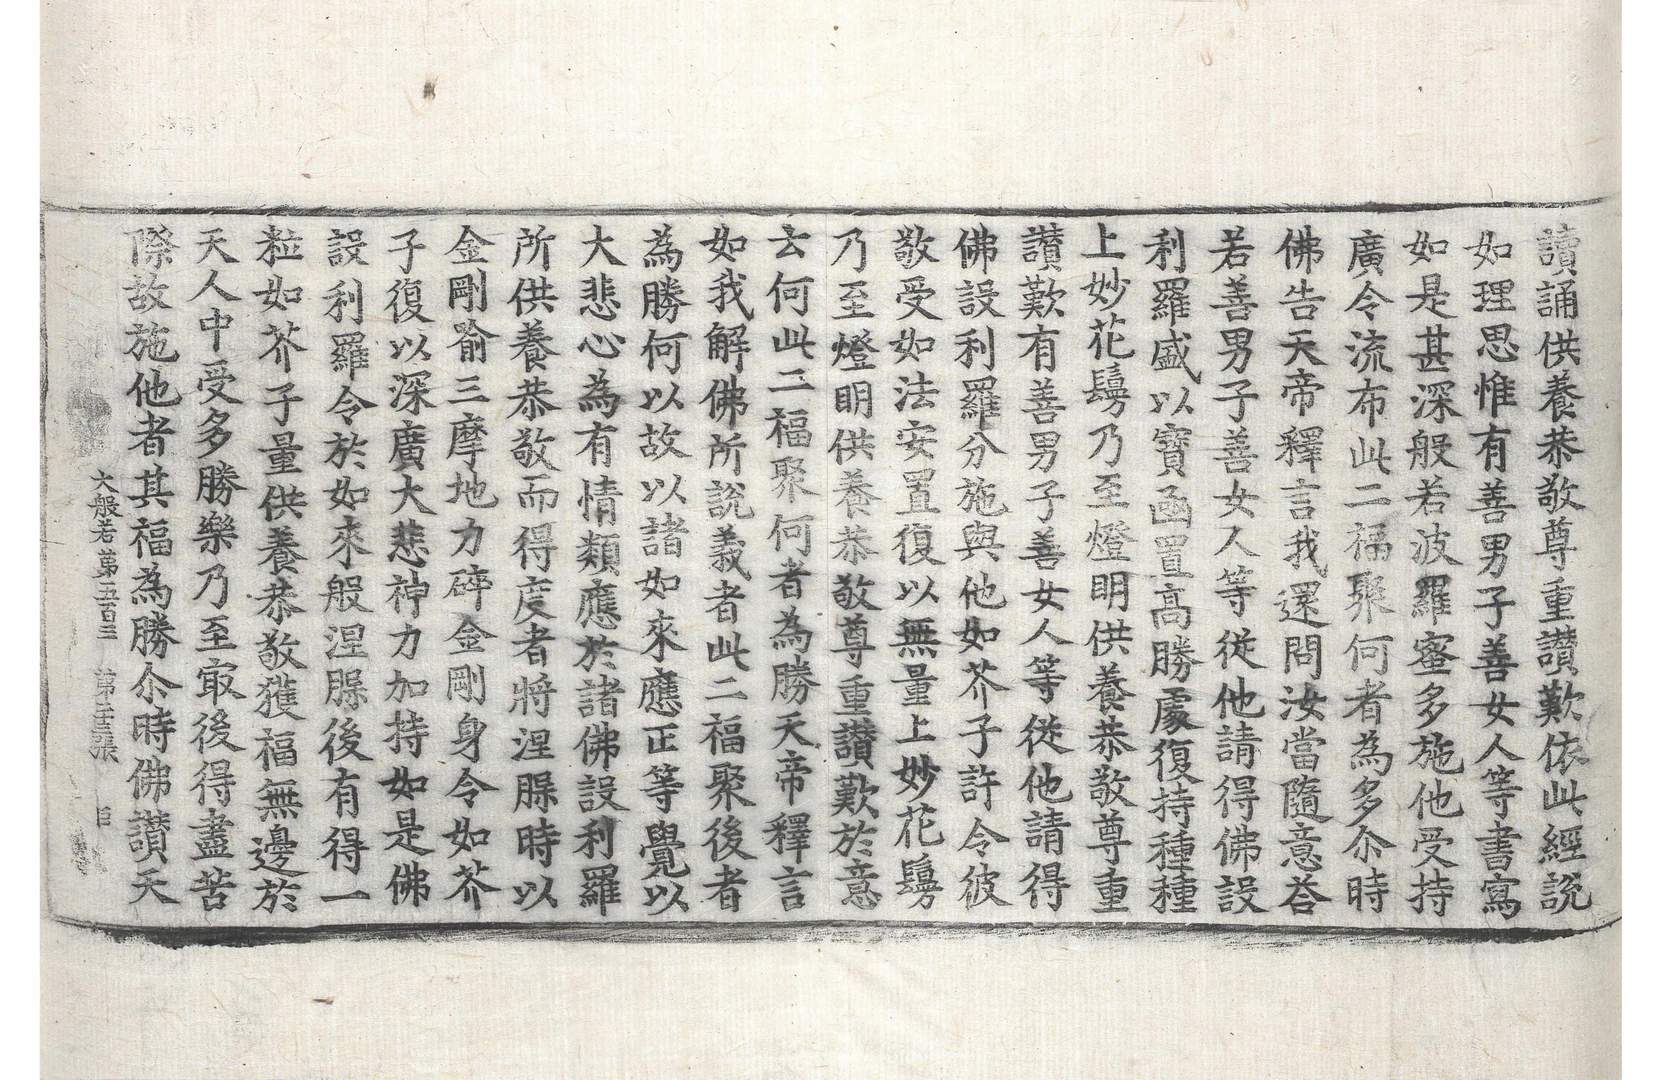 讀誦供養恭敬尊重讃歎依此經說
如理思惟有善男子善女人等書寫
如是甚深般若波羅蜜多施他受持
廣令流布此二福聚何者為多尒時
佛告天帝釋言我還問汝當隨意荅
若善男子善女人等從他請得佛設
利羅盛以寶函置高勝處復持種種
上妙花鬘乃至燈明供養恭敬尊重
讃歎有善男子善女人等從他請得
佛設利羅分施與他如芥子許令彼
敬受如法安置復以無量上妙花鬘
乃至燈明供養恭敬尊重讃歎於意
云何此二福聚何者為勝天帝釋言
如我解佛所說義者此二福聚後者
為勝何以故以諸如來應正等覺以
大悲心為有情類應於諸佛設利羅
所供養恭敬而得度者將涅槃時以
金剛喻三摩地力碎金剛身令如芥
子復以深廣大悲神力加持如是佛
設利羅令於如來般涅槃後有得一
粒如芥子量供養恭敬獲福無邊於
天人中受多勝樂乃至㝡後得盡苦
際故施他者其福為勝尒時佛讃天
大般若第五百三 第十三張 巨